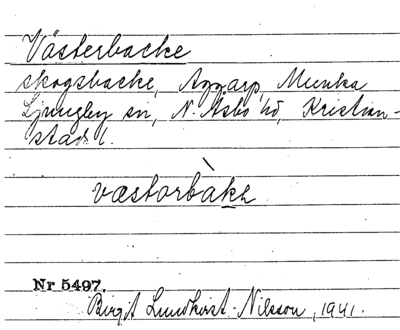 Västerbacke
skogsbacke, Aggarp, Munka
Ljungby sn, N. Åsbo hd, Kristian-
stads l.
væstorbàkə
Nr 5497.
Birgit Lundkvist-Nilsson, 1941.